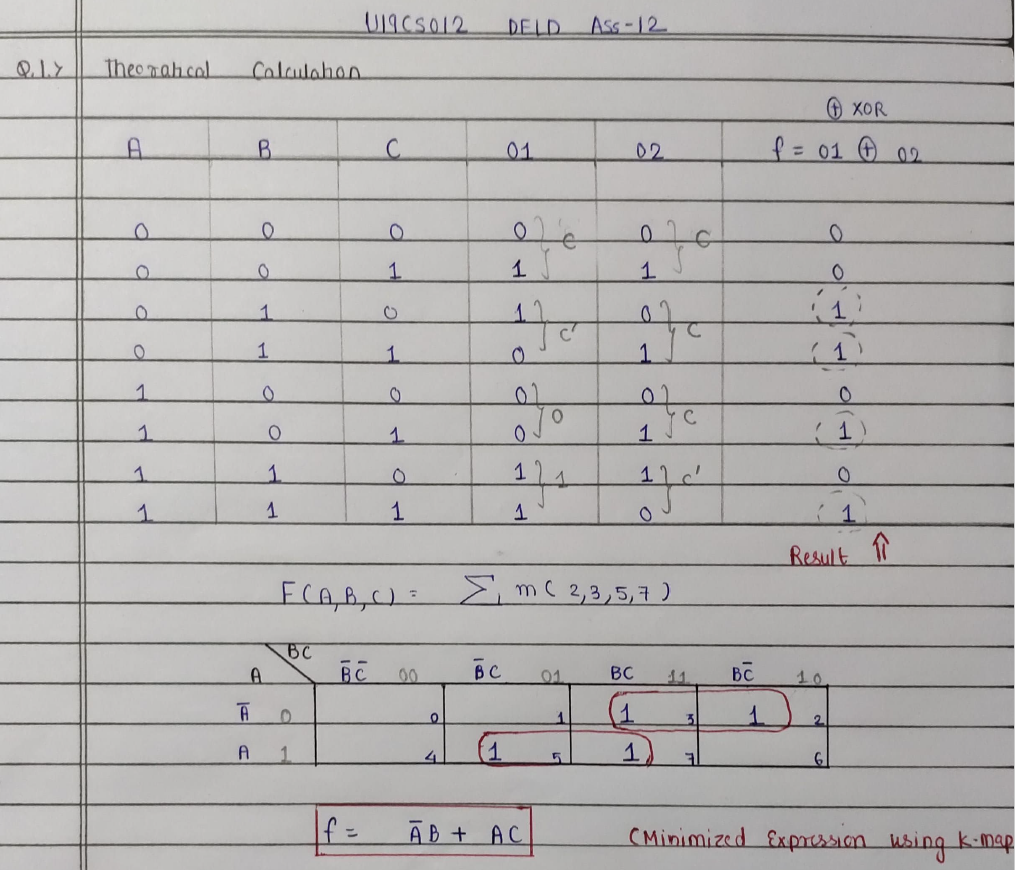 U19CS012 DELD Ass-12
Q.1.> Theoratical Calculation
⊕ XOR
A B C O1 O2 f = O1 ⊕ O2
0 0 0 0 } C 0 } C 0
0 0 1 1 1 0
0 1 0 1 } C' 0 } C 1
0 1 1 0 1 1
1 0 0 0 } 0 0 } C 0
1 0 1 0 1 1
1 1 0 1 } 1 1 } C' 0
1 1 1 1 0 1
Result ⇑
F(A,B,C) = Σ m ( 2,3,5,7 )
A \ BC B̅C̅ 00 B̅C 01 BC 11 BC̅ 10
A̅ 0 0 1 1 3 1 2
A 1 4 1 5 1 7 6
f = A̅B + AC (Minimized Expression using K-map